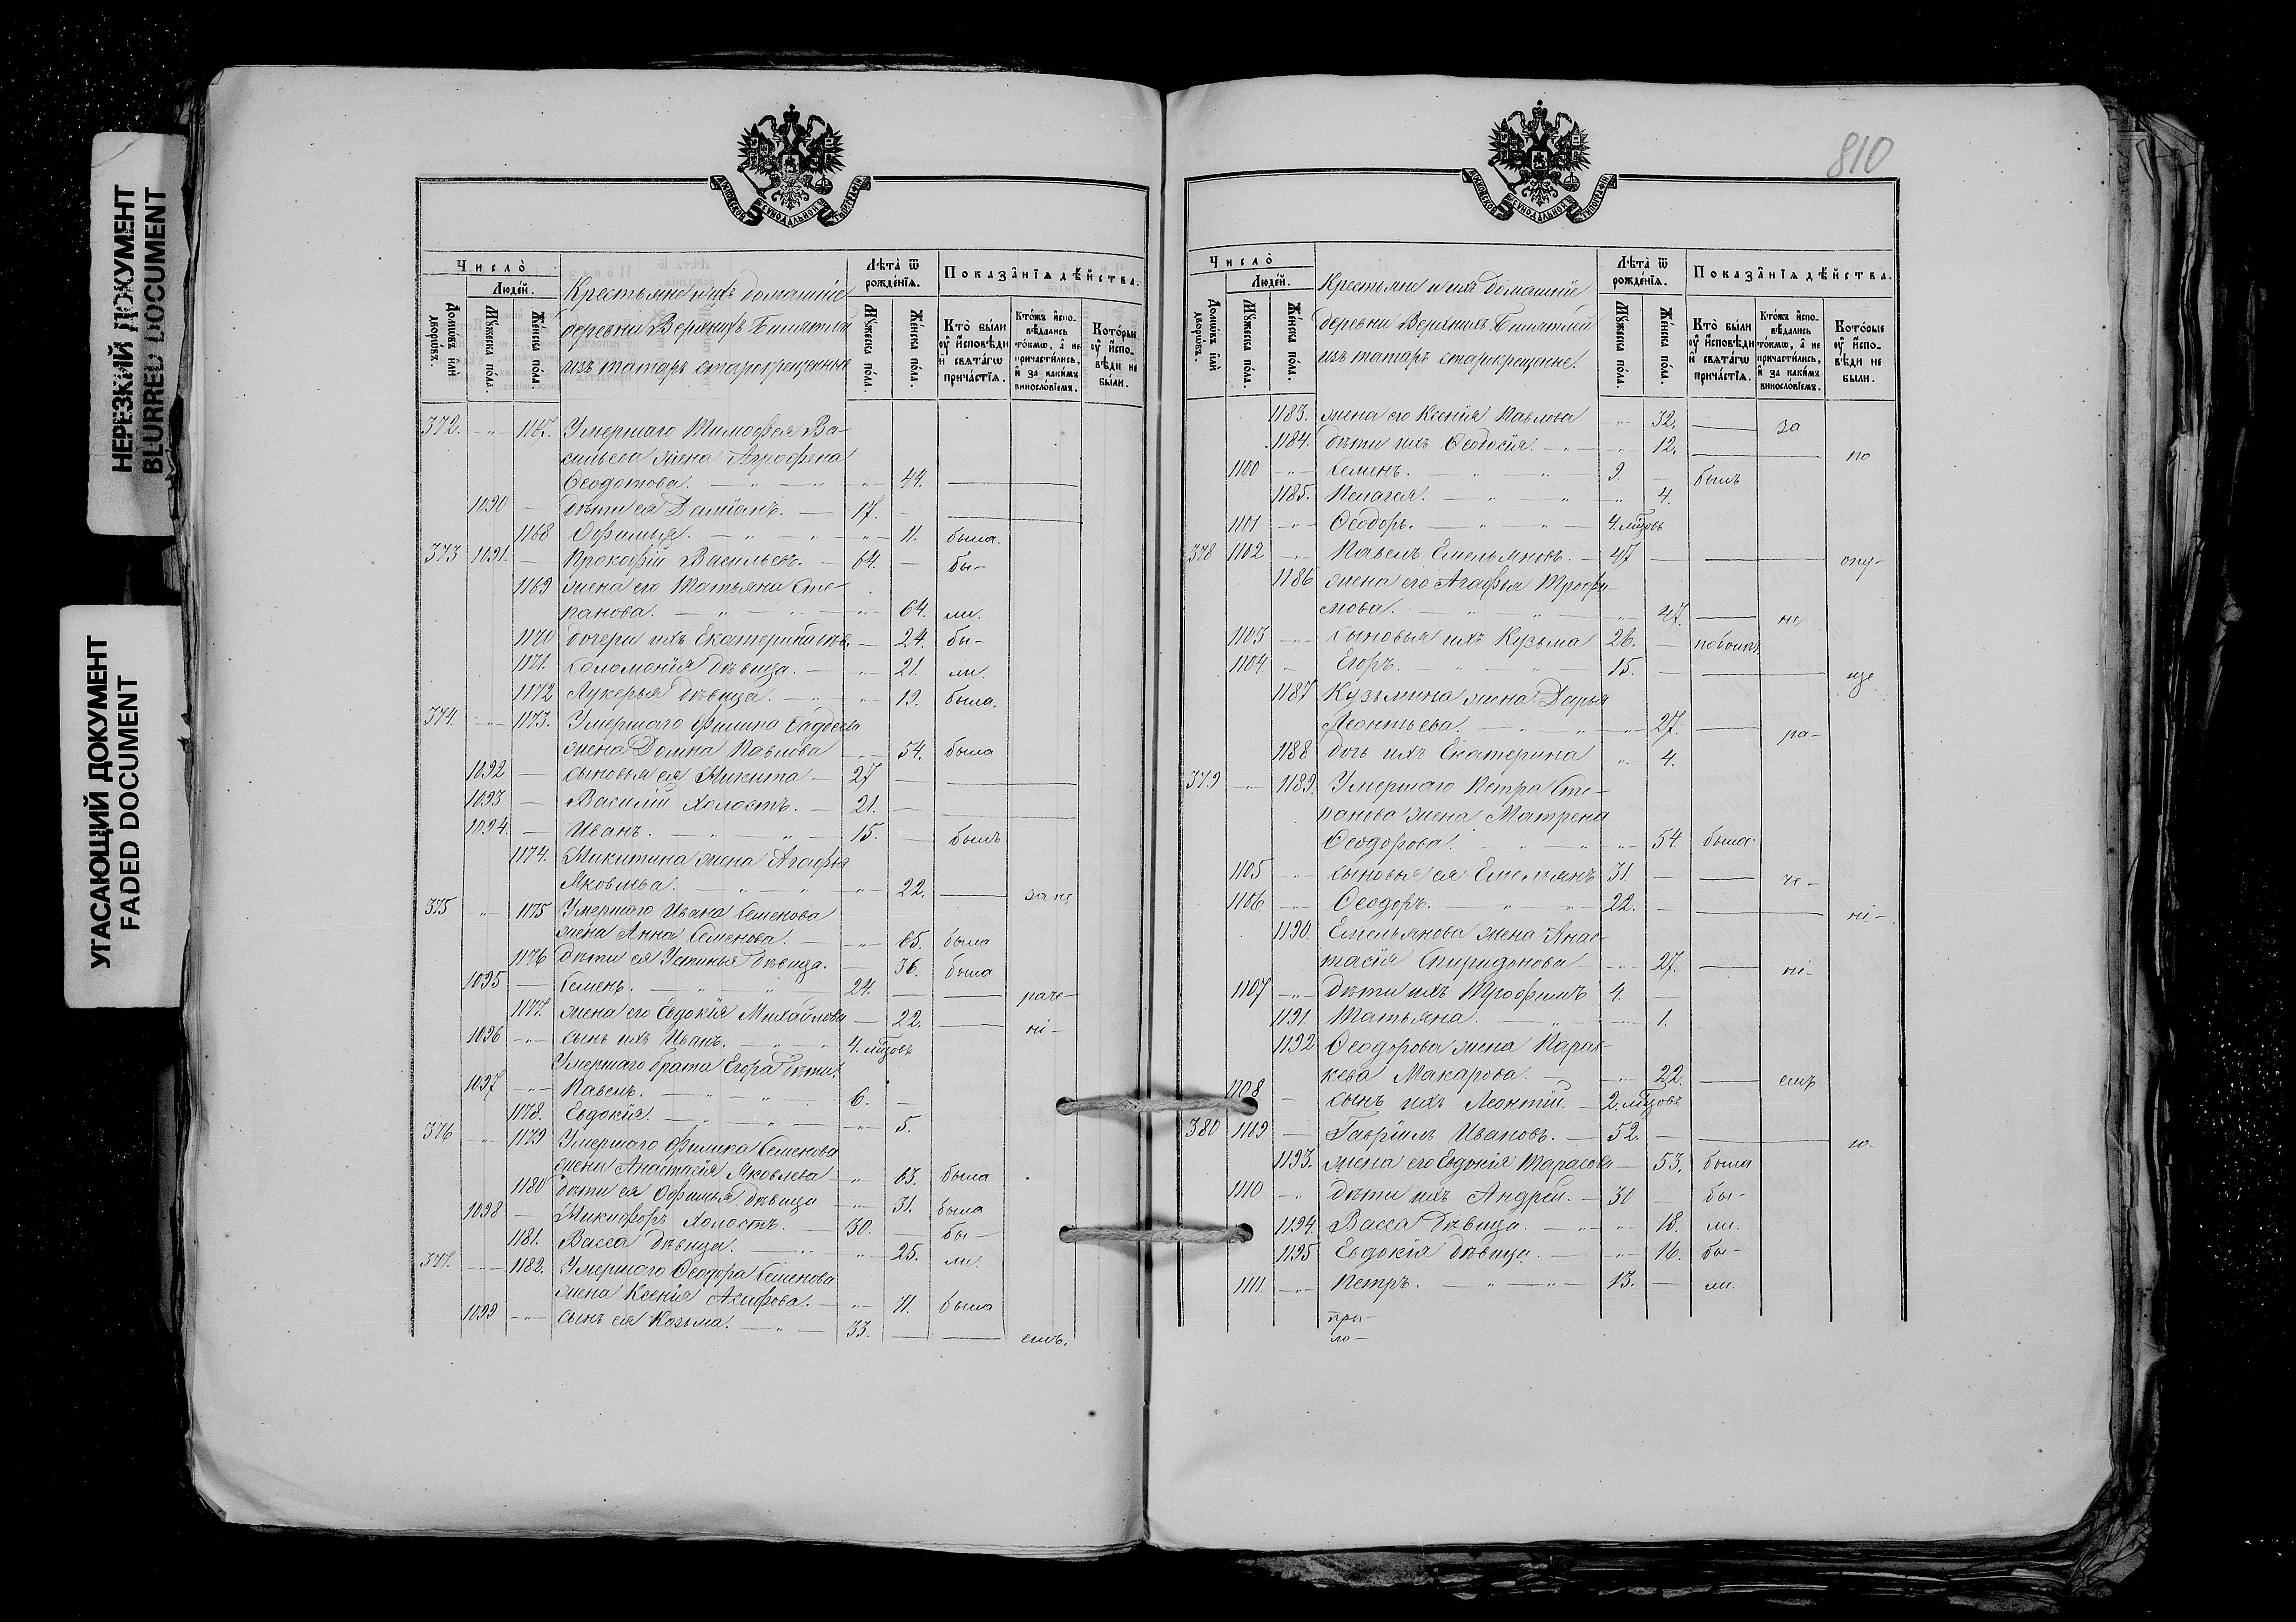 НЕРЕЗКИЙ ДОКУМЕНТ
BLURRED DOCUMENT
УГАСАЮЩИЙ ДОКУМЕНТ
FADED DOCUMENT
МОСКОВСКОЙ СѴНОДАЛЬНОЙ ТИПОГРАФІИ
Число̀
Люде́й.
Домѡ́въ и҆лѝ дворѡ́въ.
Мꙋ́жеска по́ла.
Же́нска по́ла.
Крестьяне и ихъ домашніе
деревни Верхнихъ
изъ татаръ старокрещенныя
Лѣ́та ѿ рожде́нїѧ.
Мꙋ́жеска по́ла.
Же́нска по́ла.
Показа̑нїѧ дѣ́йства.
Кто̀ бы́ли оу҆ и҆сповѣ́ди и҆ свѧта́гѡ прича́стїѧ.
Кто́жъ и҆спо-вѣ́дались то́кмѡ, а҆ не причасти́лись, и҆ за каки́мъ виносло́вїемъ.
Кото́рые оу҆ и҆спо-вѣ́ди не бы́ли.
372. -"- 1167. Умершаго Тимофея Ва-
сильева жена Агрофена
Ѳеодотова. - " - " -"- 44.
1090 - дѣти ея Даміанъ. - 17. -
1168 Офимья. - " - " -"- 11. была.
373 1091. - Прокофій Васильевъ. - 64. - бы-
1169 жена его Татьяна Сте-
панова. - " - " -"- 64. ли.
1170 дочери ихъ Екатерина - 24. бы-
1171. Соломонія дѣвица. - -"- 21. ли.
1172 Лукерья дѣвица. - " - 19. была.
374. -"- 1173. Умершаго Филипа
жена Домна Павлова -"- 54. была
1092 - сыновья ея Микита - 27 -
1093 - Василій холостъ. - 21. -
1094. - Иванъ. - " - " - 15. - былъ
1174. Микитина жена Агафья
Яковлева. - " - " -"- 22. за не
375 " 1175 Умершаго Ивана Семенова
жена Анна Семенова. - -"- 65. была
1176 дѣти ея Устинья дѣвица. - 36. была
1095 - Семенъ. - " - " - 24. - раче-
1177. жена его Евдокія Михайлова - 22. ні-
1096 -"- сынъ ихъ Иванъ. - " - " 4. мцовъ
Умершаго брата Егора дѣти:
1097 -"- Павелъ. - " - " - 6. -
1178. Евдокія. - " - " -"- 5.
376 -"- 1179 Умершаго Филипа Семенова
жена Анастасія Яковлева -"- 63. была
1180 дѣти ея Офимья дѣвица -"- 31. была
1098 - Микифоръ холостъ. - 30. - бы-
1181. Васса дѣвица. - " -"- 25. ли.
377. -"- 1182. Умершаго Ѳеодора Семенова
жена Ксенія -"- 71. была
1099 -"- сынъ ея Козьма. - " - 33. - емъ.
810
МОСКОВСКОЙ СѴНОДАЛЬНОЙ ТИПОГРАФІИ
Число̀
Люде́й.
Домѡ́въ и҆лѝ дворѡ́въ.
Мꙋ́жеска по́ла.
Же́нска по́ла.
Крестьяне и ихъ домашніе
деревни Верхнихъ
изъ татаръ старокрещенне.
Лѣ́та ѿ рожде́нїѧ.
Мꙋ́жеска по́ла.
Же́нска по́ла.
Показа̑нїѧ дѣ́йства.
Кто̀ бы́ли оу҆ и҆сповѣ́ди и҆ свѧта́гѡ прича́стїѧ.
Кто́жъ и҆спо-вѣ́дались то́кмѡ, а҆ не причасти́лись, и҆ за каки́мъ виносло́вїемъ.
Кото́рые оу҆ и҆спо-вѣ́ди не бы́ли.
1183. жена его Ксенія Павлова " 32. за
1184. дѣти ихъ Ѳеодосія. -"- " 12. по
1100 -"- Семенъ. - " - " 9. - былъ
1185. Пелагея. - " - " " 4.
1101 -"- Ѳеодоръ. - " - " - 4. мцовъ
378 1102 -"- Павелъ Емельяновъ. - 47 - опу-
1186 жена его Агафья Трофи-
мова. - " - " -"- 47. не
1103 -"- сыновья ихъ Кузьма 26. -
1104 - Егоръ. - " - " - 15. - ще
1187 Кузьмина жена Дарья
Леонтьева. - " - " -"- 27. ра-
1188 дочь ихъ Екатерина " 4.
379 -"- 1189. Умершаго Петра Сте-
панова жена Матрена
Ѳеодорова. - " - " -"- 54 была
1105 -"- сыновья ея Емельянъ 31 - че-
1106 -"- Ѳеодоръ. - " - " - 22. - ні-
1190. Емельянова жена Анас-
тасія Спиридонова -"- 27. ні-
1107 -"- дѣти ихъ Трофимъ 4. -
1191. Татьяна. - " -"- 1.
1192 Ѳеодорова жена Парас-
кева Макарова. - -"- 22. емъ
1108 - сынъ ихъ Леонтій. - 2. мцовъ
380 1109 - Гавріилъ Ивановъ. - 52. - ю.
1193. жена его Евдокія Тарасова - 53. была
1110 -"- дѣти ихъ Андрей. - 30 - бы-
1194. Васса дѣвица. - " -"- 18. ли.
1195 Евдокія дѣвица. - -"- 16. бы-
1111. -"- Петръ. - " -"- 13. - ли.